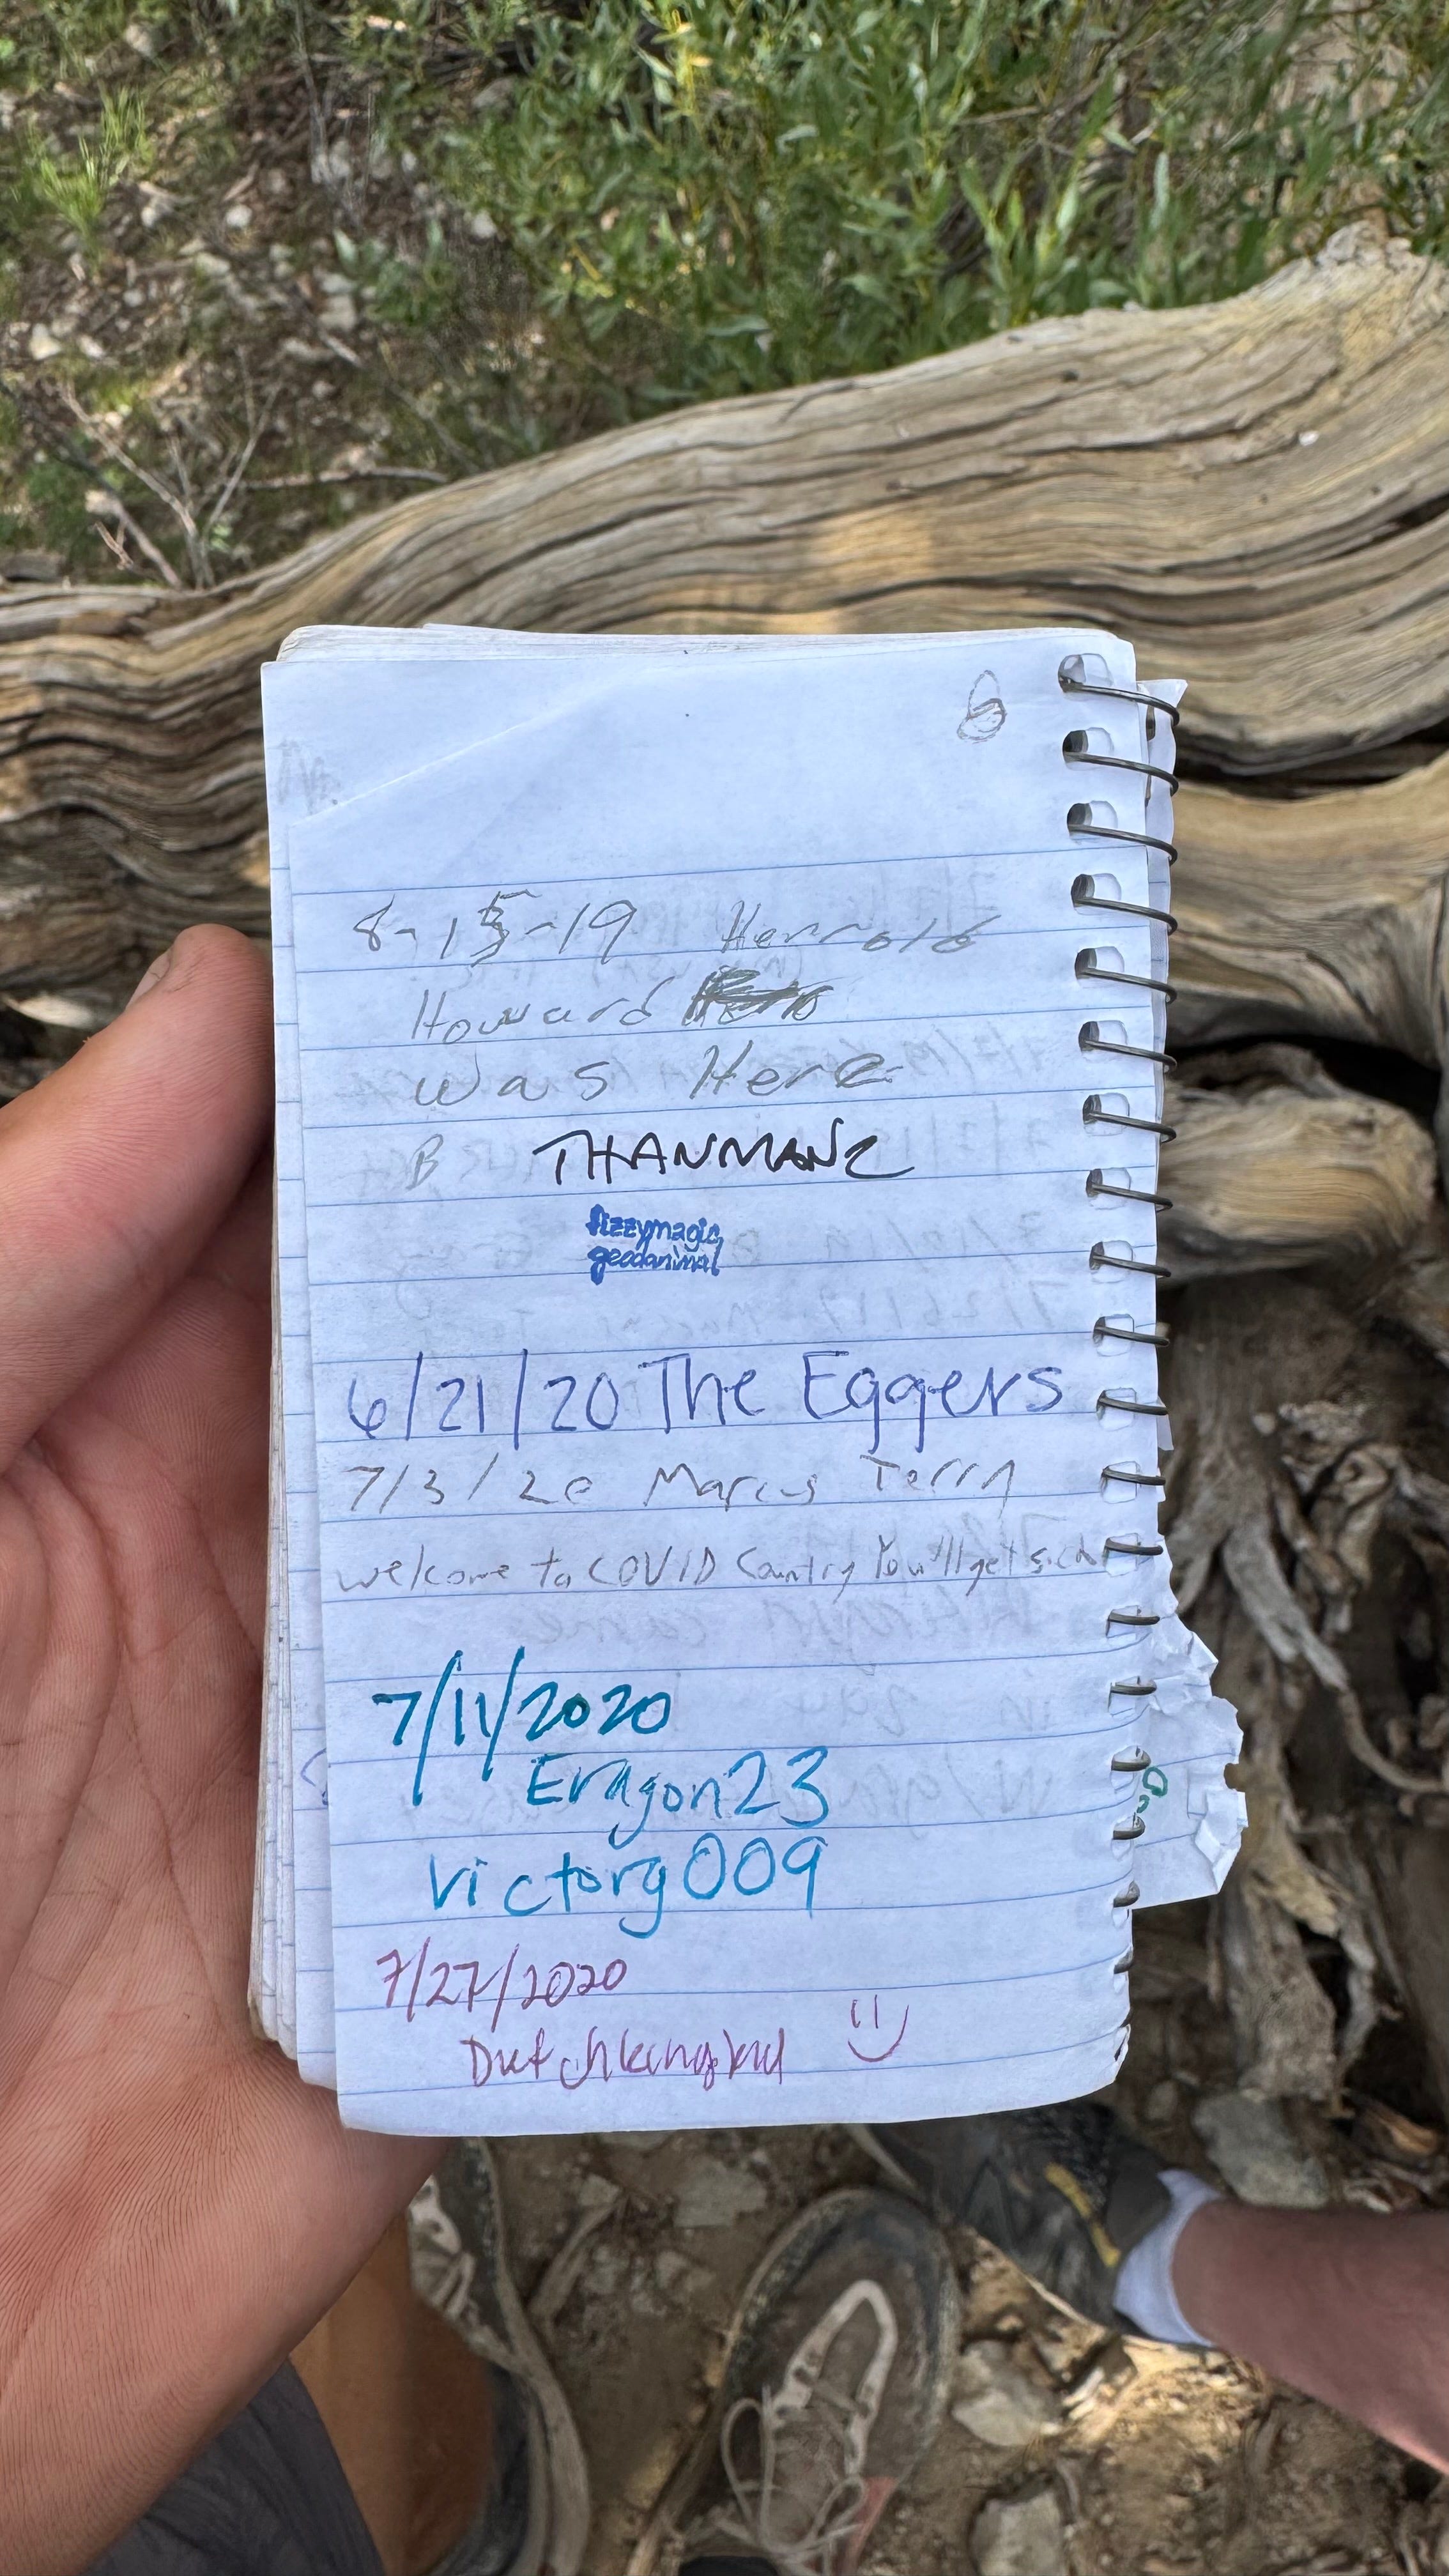 8-15-19 Herrold
Howard
was Here
B THANMANZ
fizzymagic
geodanimal
6/21/20 The Eggers
7/3/20 Marcus Terry
welcome to COVID Country You'll get sick
7/11/2020
Eragon23
Victorg009
7/27/2020
Dutchkingkid